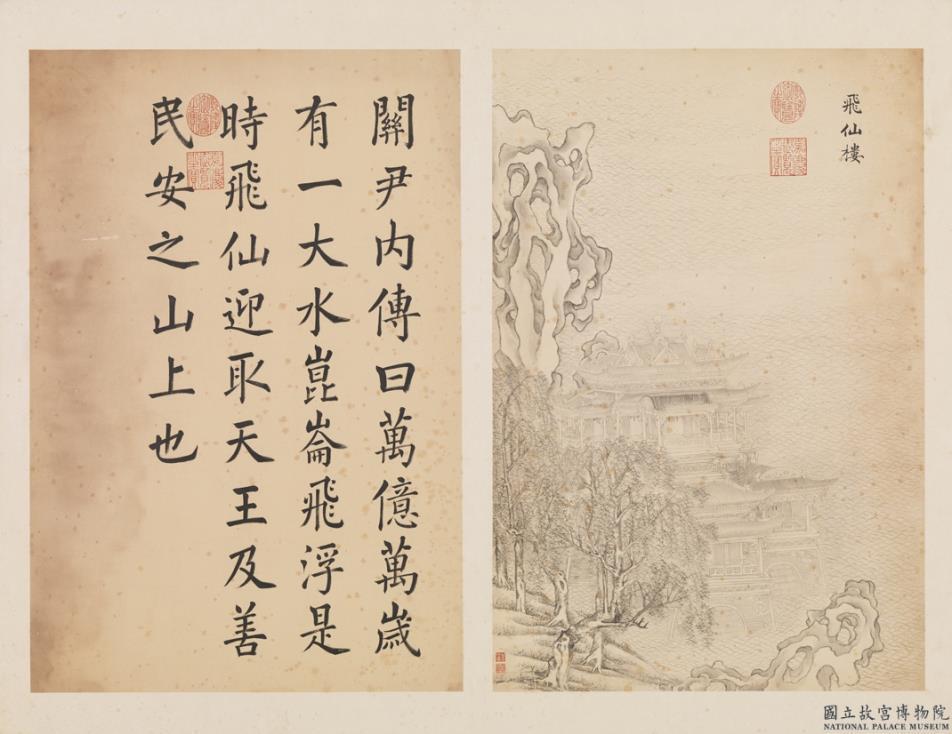 飛仙樓
關尹内傳曰萬億萬歲
有一大水崑崙飛浮是
時飛仙迎取天王及善
民安之山上也
國立故宮博物院
NATIONAL PALACE MUSEUM